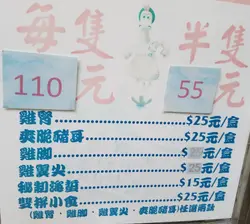 每隻 半隻
110 元 55 元
雞腎..............$25元/盒
爽脆豬耳..............$25元/盒
雞腳..............$ 元/盒
雞翼尖..............$ 元/盒
秘制滷蛋..............$15元/盒
雙拼小食..............$25元/盒
(雞腎、雞腳、雞翼尖、爽脆豬耳)任選兩款